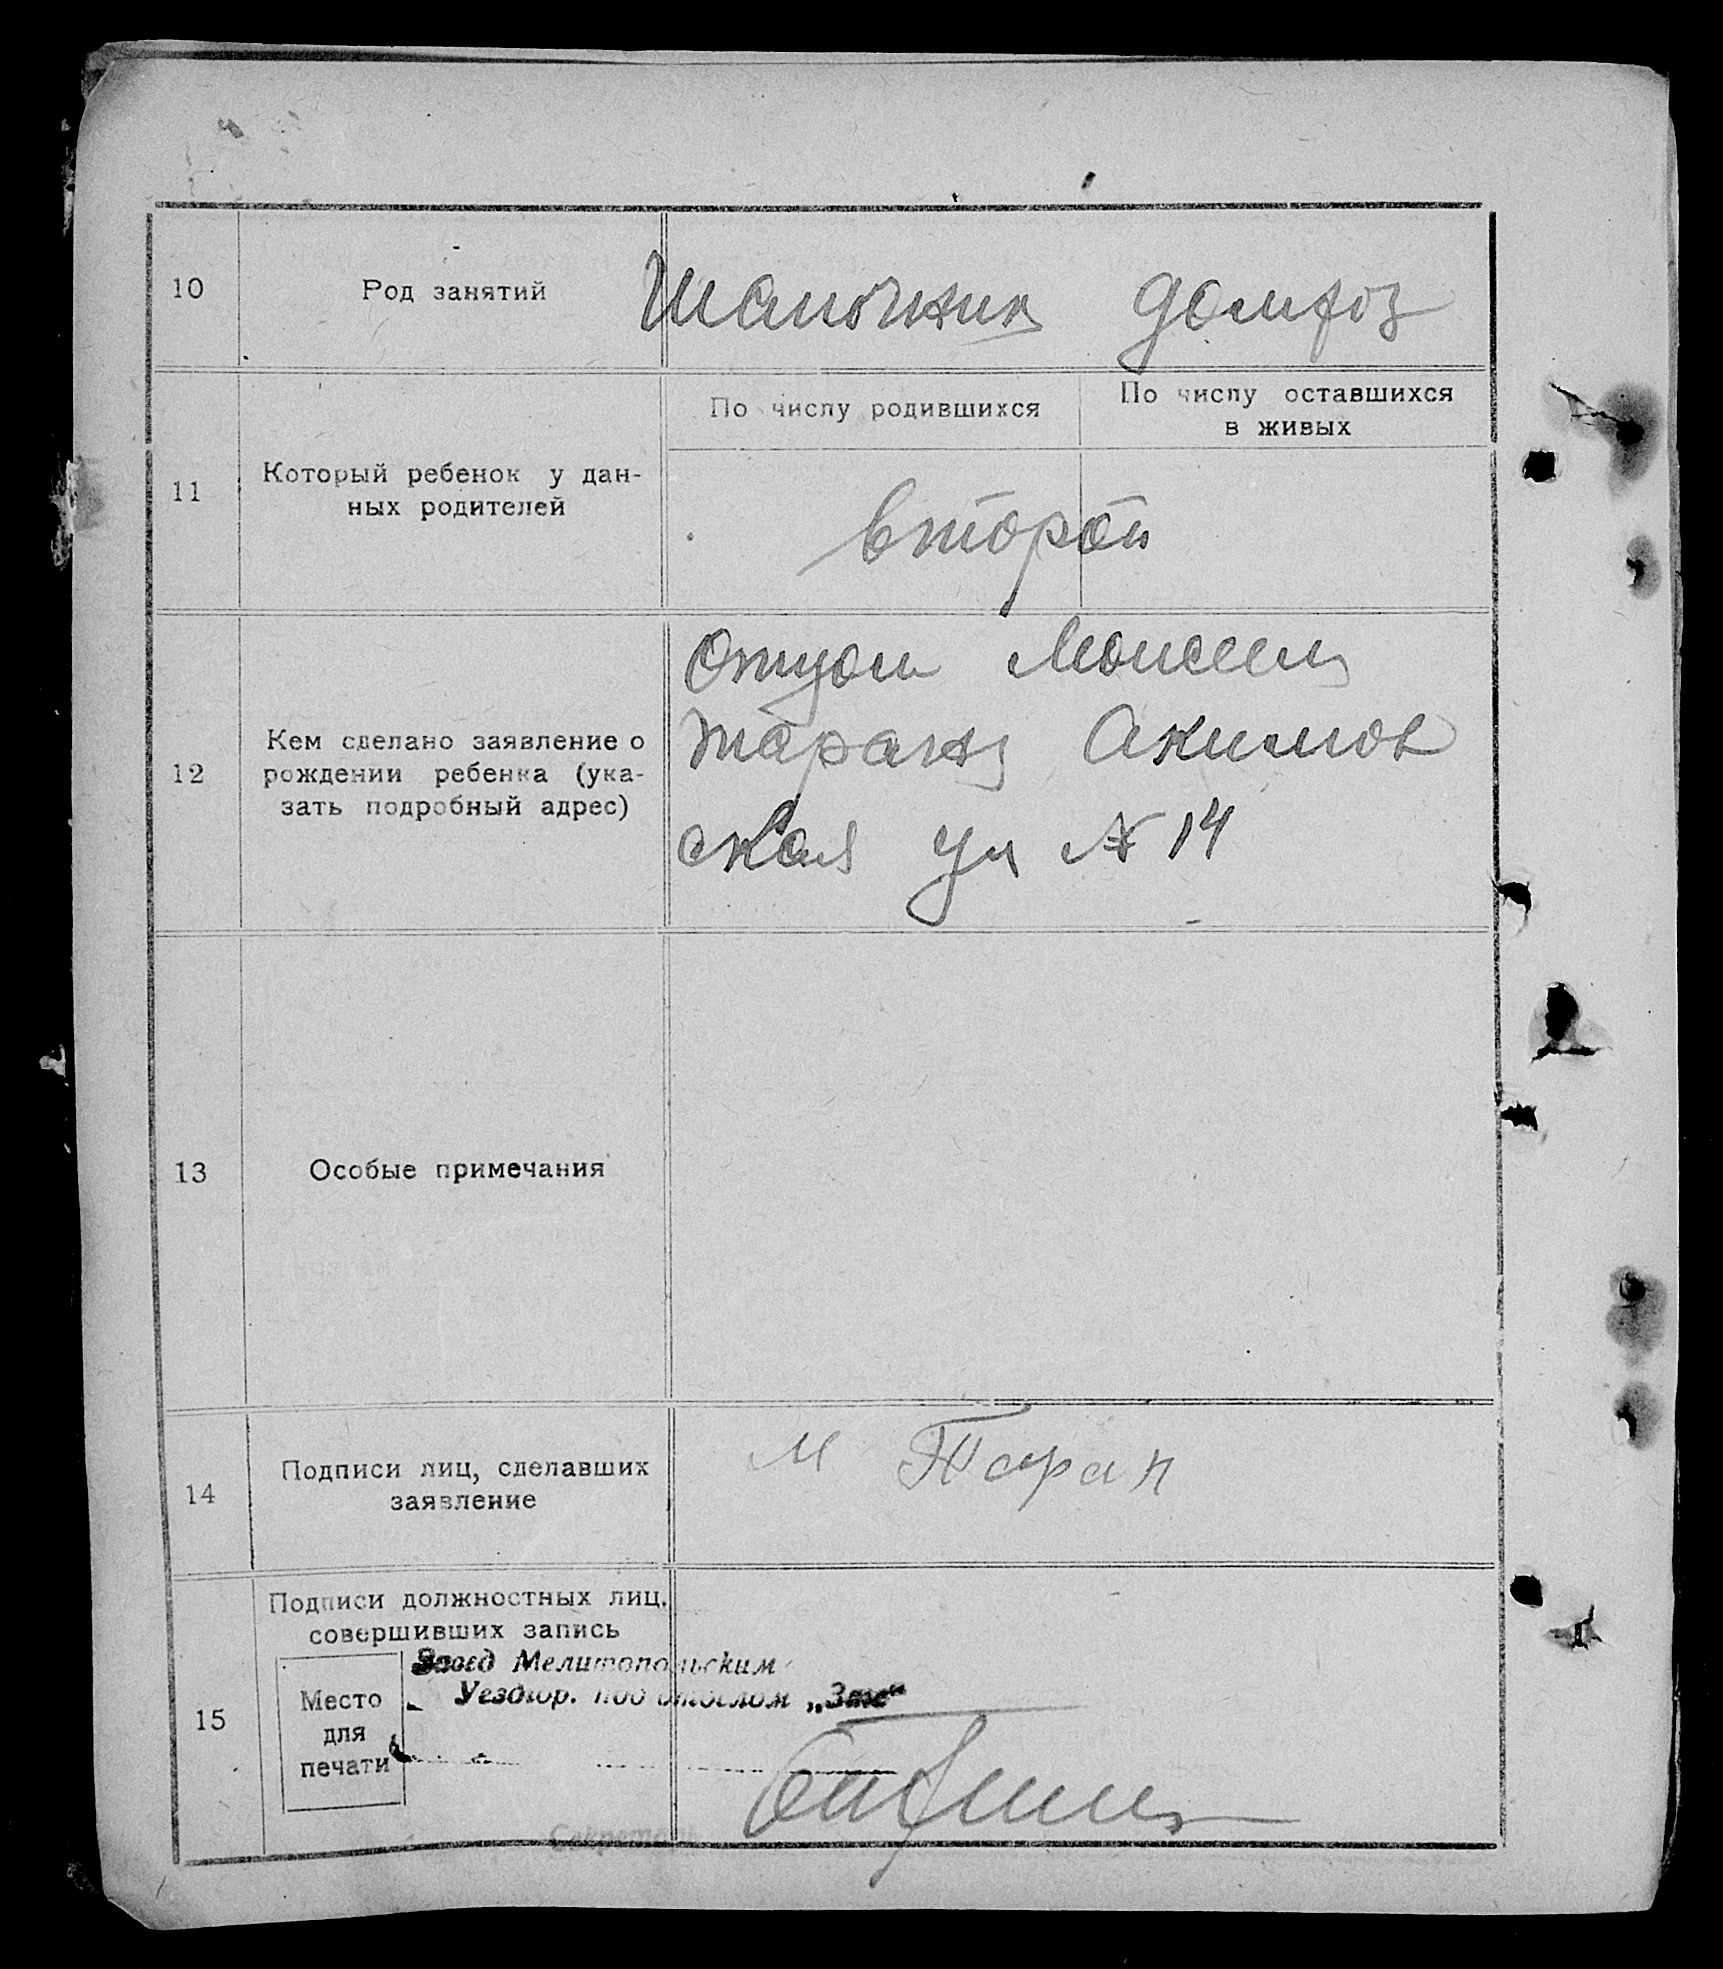 10
Род занятий
Шапочник домхоз
11
Который ребенок у дан-
ных родителей
По числу родившихся
По числу оставшихся
в живых
второй
12
Кем сделано заявление о
рождении ребенка (ука-
зать подробный адрес)
Отцом Моисеем
Таран Акимов
ская ул № 14
13
Особые примечания
14
Подписи лиц, сделавших
заявление
М Таран
15
Подписи должностных лиц.
совершивших запись
Место
для
печати
Завед Мелитопольским
Уездгор. подотделом „Загс“
Секретарь